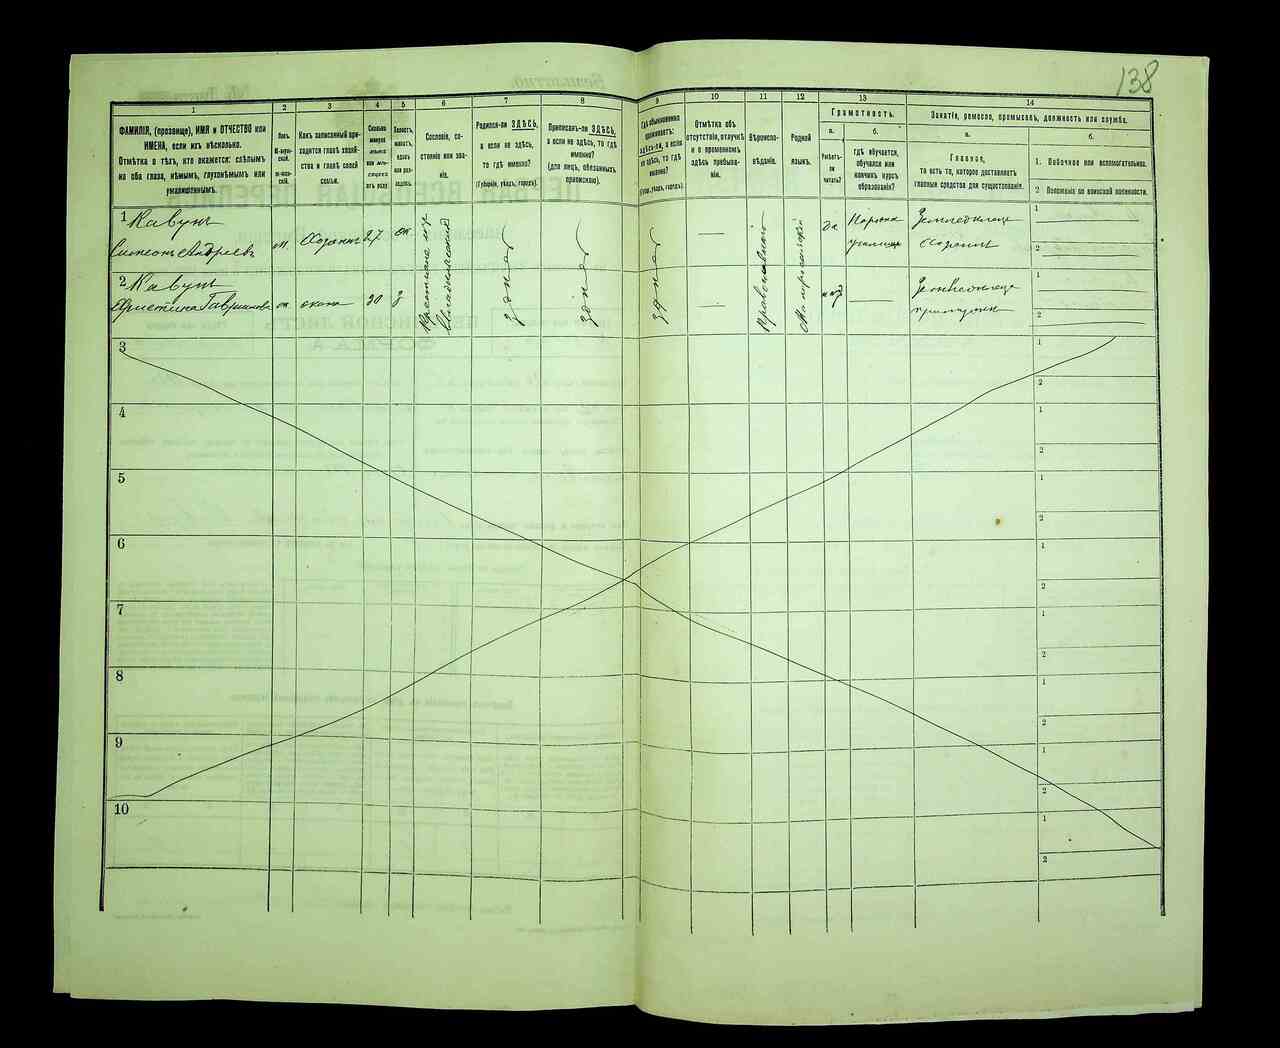 138
1
2
3
4
5
6
7
8
9
10
11
12
13
14
ФАМИЛІЯ, (прозвище), ИМЯ и ОТЧЕСТВО или
ИМЕНА, если ихъ нѣсколько.
Отмѣтка о тѣхъ, кто окажется: слѣпымъ
на оба глаза, нѣмымъ, глухонѣмымъ или
умалишеннымъ.
Полъ.
Какъ записанный при-
ходится главѣ хозяй-
ства и главѣ своей
семьи.
Сколько
минуло
лѣтъ
или мѣ-
сяцевъ
отъ роду
Холостъ,
женатъ,
вдовъ
или раз-
веденъ.
Сословіе, со-
стояніе или зва-
ніе.
Родился-ли ЗДѢСЬ,
а если не здѣсь,
то гдѣ именно?
(Губернія, уѣздъ, городъ).
Приписанъ-ли ЗДѢСЬ,
а если не здѣсь, то гдѣ
именно?
(для лицъ, обязанныхъ
припискою).
Гдѣ обыкновенно
проживаетъ:
здѣсь-ли, а если
не здѣсь, то гдѣ
именно?
(Губер., уѣздъ, городъ).
Отмѣтка объ
отсутствіи, отлучкѣ
и о временномъ
здѣсь пребыва-
ніи.
Вѣроиспо-
вѣданіе.
Родной
языкъ.
Грамотность.
а.
Умѣетъ-
ли
читать?
б.
гдѣ обучается,
обучался или
кончилъ курсъ
образованія?
Занятіе, ремесло, промыселъ, должность или служба.
а.
Главное,
то есть то, которое доставляетъ
главныя средства для существованія.
б.
1. Побочное или вспомогательное.
2 Положеніе по воинской повинности.
1 Кавунъ
Симеонъ Андреевъ
м.
Хозяинъ
27
ж
Крестьяне изъ
здѣсь
здѣсь
здѣсь
—
Православнаго
Малороссійскій
да
Народн
училищѣ
Земледѣлецъ
Хозяинъ
1
2
2 Кавунъ
Христина Гавриловна
ж.
жена
30
з
—
нѣт
—
1
2
3
1
2
4
1
2
5
1
2
6
1
2
7
1
2
8
1
2
9
1
2
10
1
2